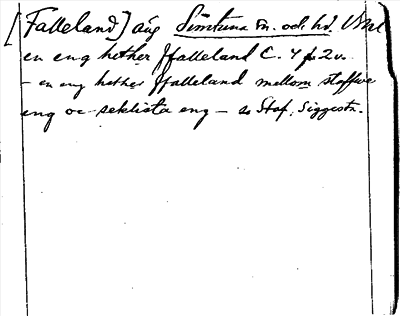 [Falleland] äng Simtuna sn. och hd. Uml
en eng hether Ffalleland C. 4 p. 2v.
- en eng hether ffalleland mellom staffwe
eng oc seklista eng - s Staf, Siggesta.